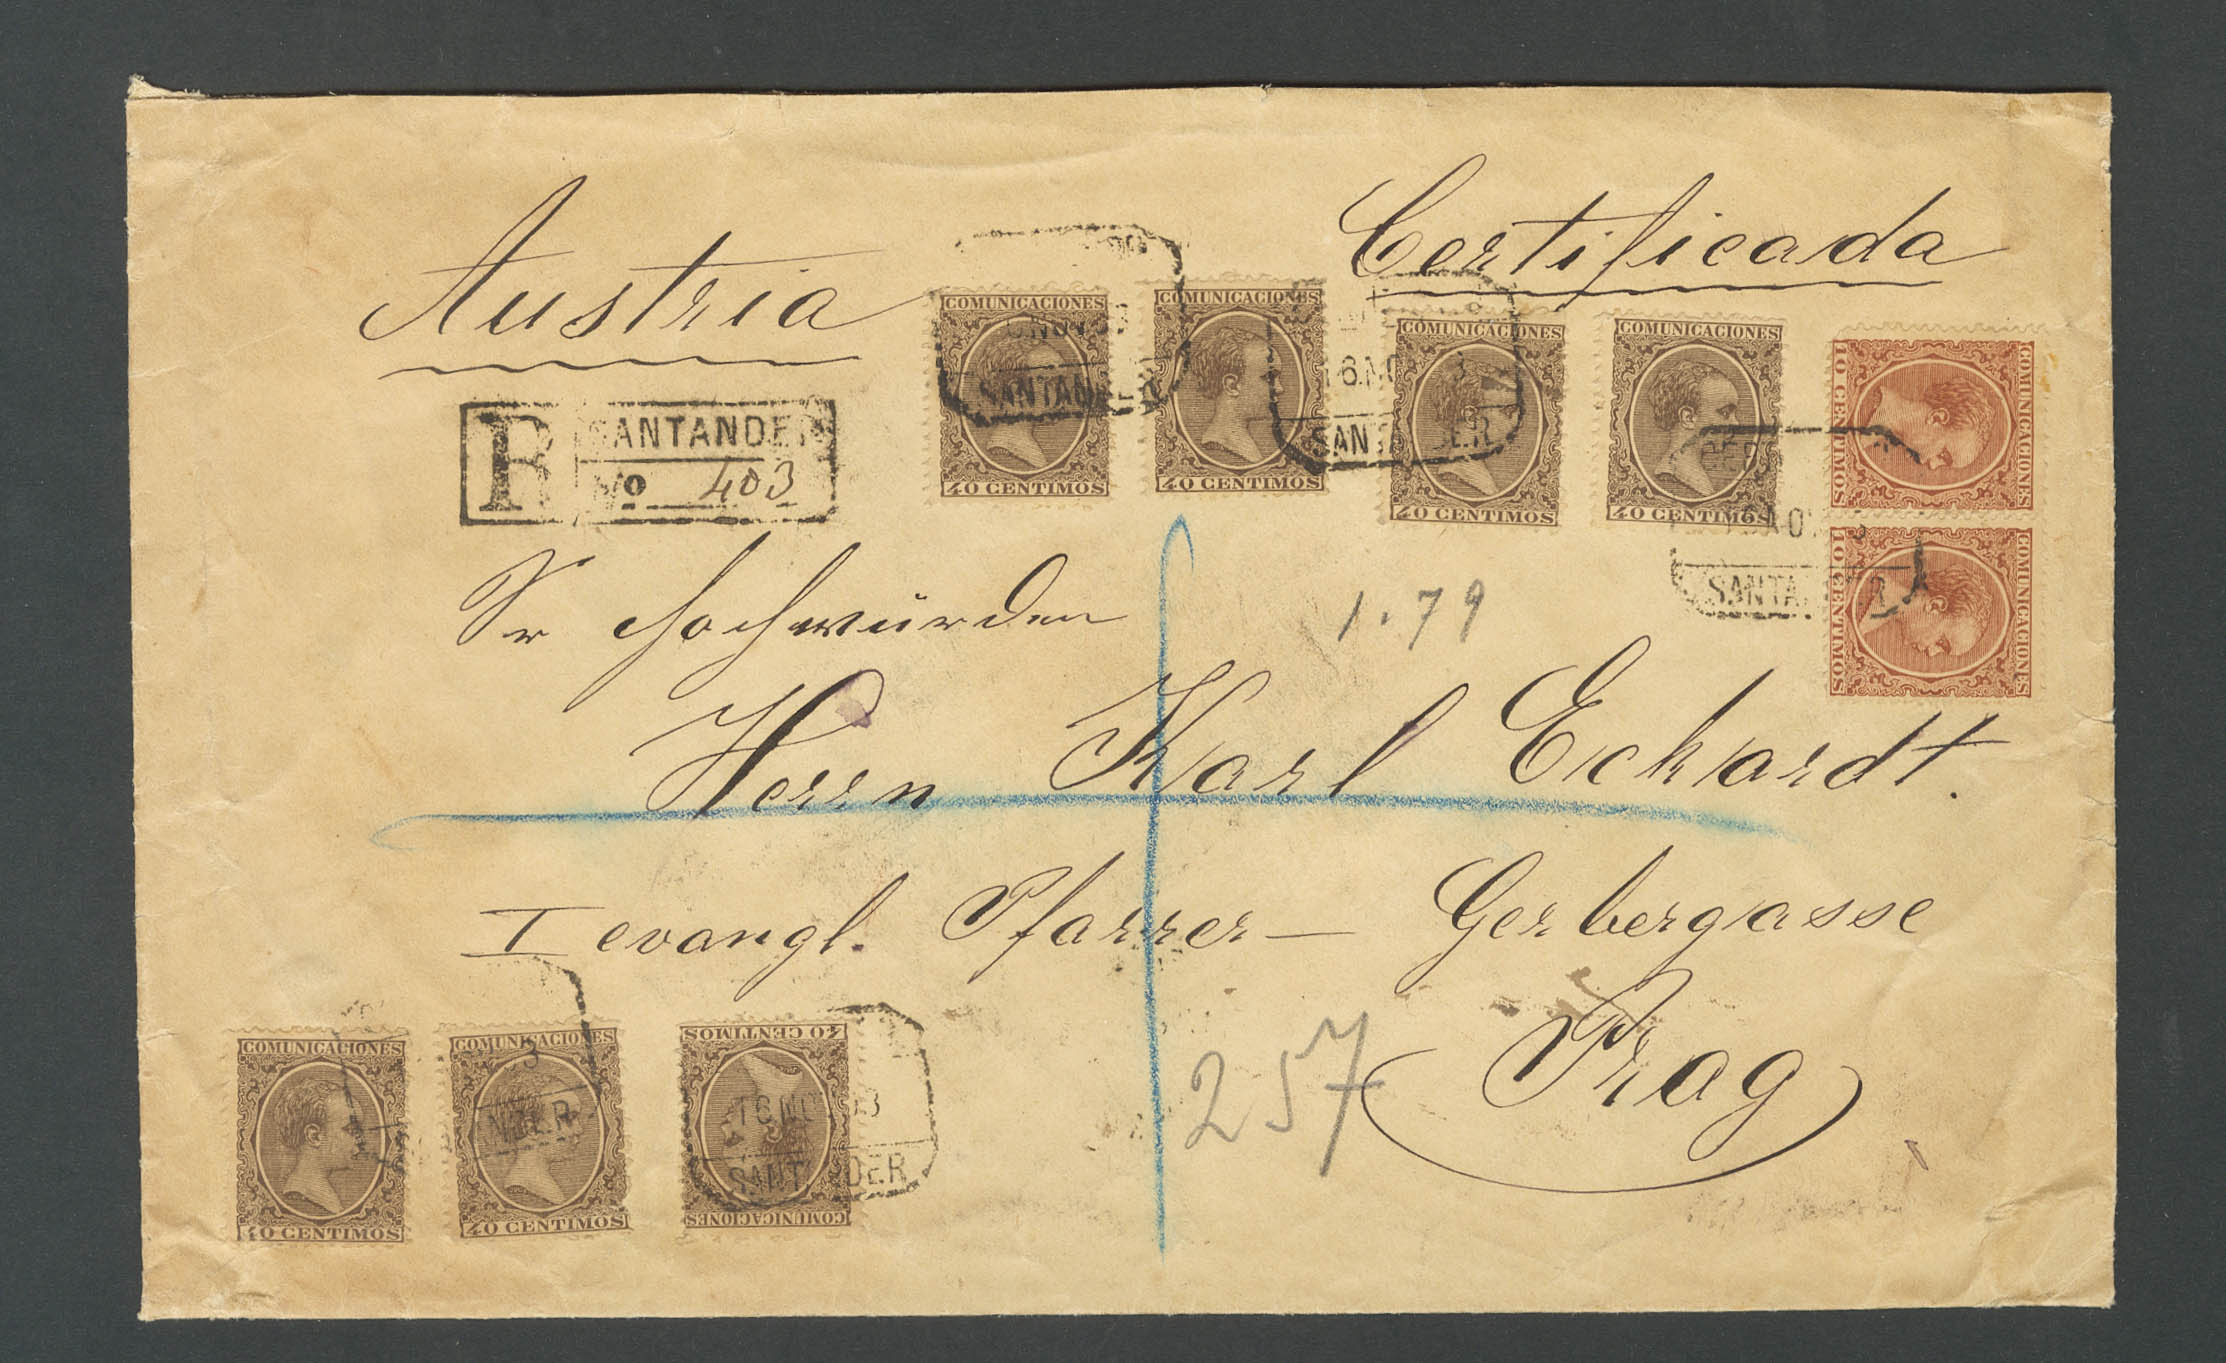 Austria
Certificada
COMUNICACIONES
40 CENTIMOS
COMUNICACIONES
40 CENTIMOS
COMUNICACIONES
40 CENTIMOS
COMUNICACIONES
40 CENTIMOS
COMUNICACIONES
10 CENTIMOS
COMUNICACIONES
10 CENTIMOS
SANTANDER
SANTANDER
SANTANDER
R SANTANDER
No 403
Sr Hochwürden
1.79
Herrn Karl Eckardt.
I evangl. Pfarrer — Gerbergasse
Prag
257
COMUNICACIONES
40 CENTIMOS
COMUNICACIONES
40 CENTIMOS
COMUNICACIONES
40 CENTIMOS
SANTANDER